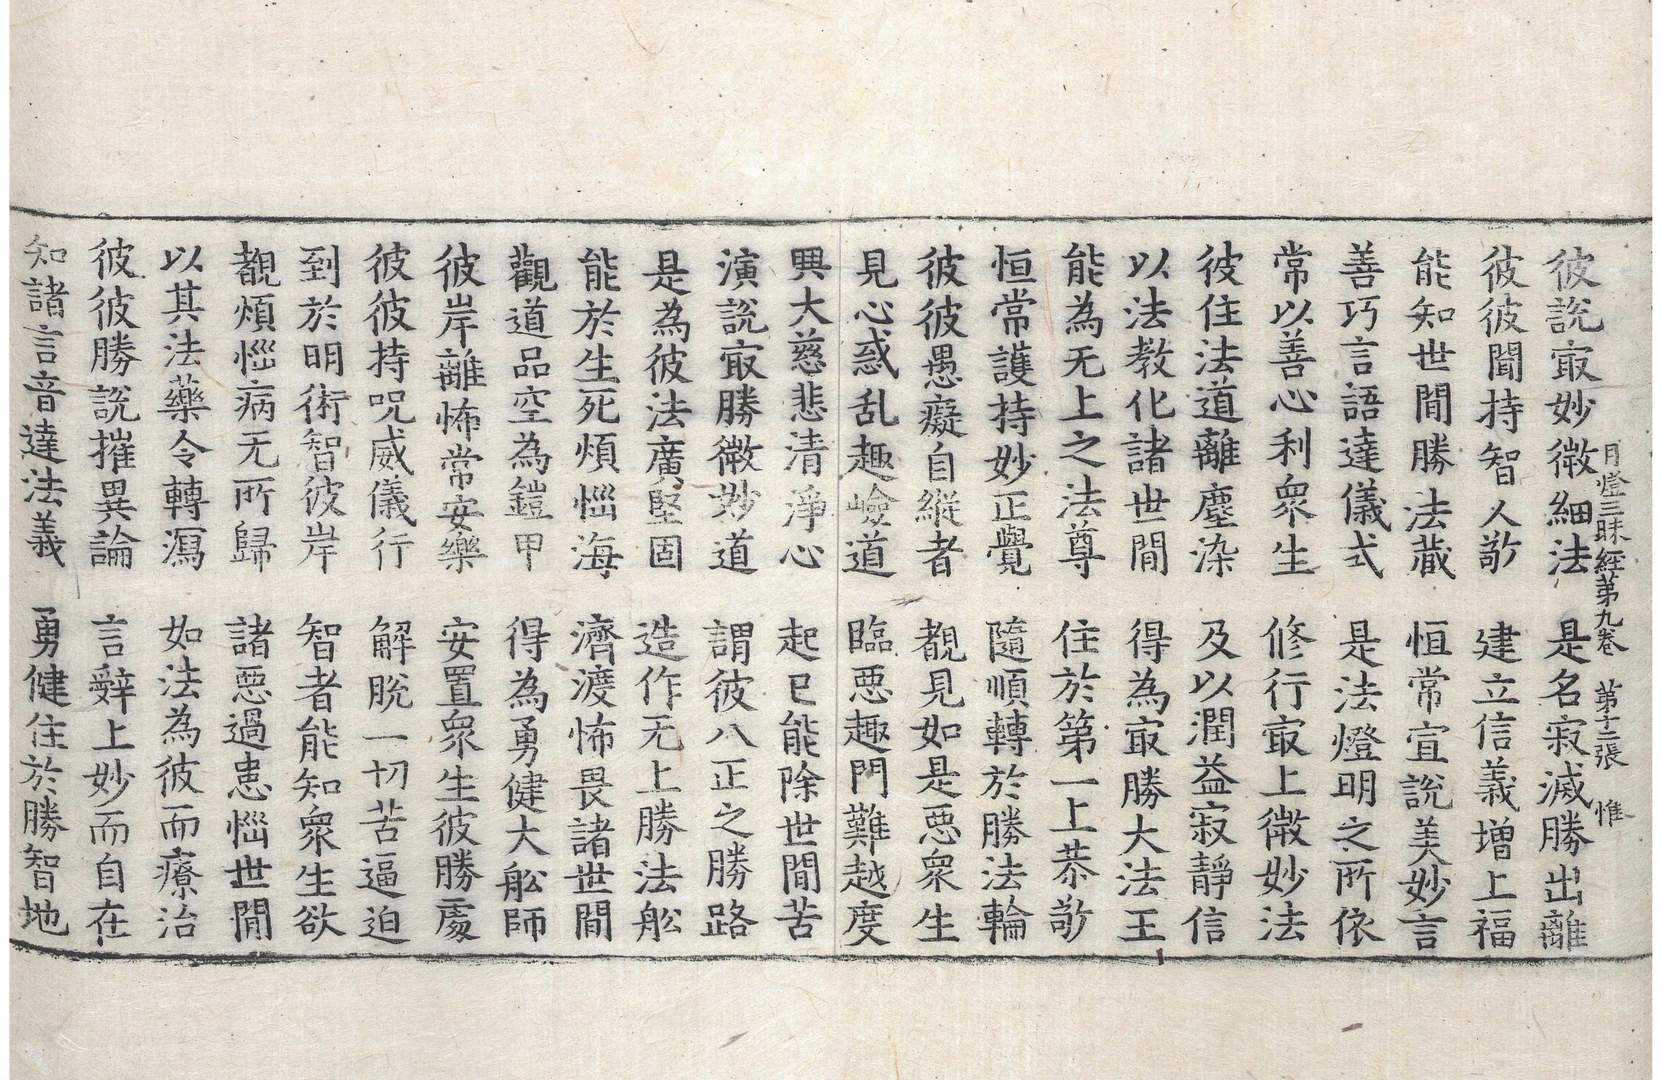 彼說㝡妙微細法　是名寂滅勝出離
月燈三昧經第九卷　第十二張　惟
彼彼聞持智人敬　建立信義增上福
能知世間勝法藏　恒常宣說美妙言
善巧言語達儀式　是法燈明之所依
常以善心利衆生　修行㝡上微妙法
彼住法道離塵染　及以潤益寂靜信
以法教化諸世間　得為㝡勝大法王
能為无上之法尊　住於第一上恭敬
恒常護持妙正覺　隨順轉於勝法輪
彼彼愚癡自縱者　覩見如是惡衆生
見心惑乱趣嶮道　臨惡趣門難越度
興大慈悲清淨心　起已能除世間苦
演說㝡勝微妙道　謂彼八正之勝路
是為彼法廣堅固　造作无上勝法舩
能於生死煩惱海　濟渡怖畏諸世間
觀道品空為鎧甲　得為勇健大舩師
彼岸離怖常安樂　安置衆生彼勝處
彼彼持呪威儀行　解脫一切苦逼迫
到於明術智彼岸　智者能知衆生欲
覩煩惱病无所歸　諸惡過患惱世間
以其法藥令轉瀉　如法為彼而療治
彼彼勝說摧異論　言辭上妙而自在
知諸言音達法義　勇健住於勝智地